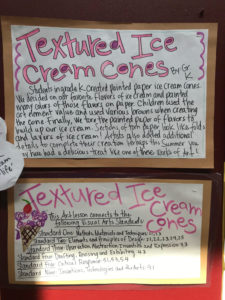 Textured Ice
Cream Cones
By Gr.
K.
Students in grade K created painted paper ice cream cones.
We decided on our favorite flavors of ice cream and painted
many colors of those flavors on paper. Children used the
art element value and used various browns when creating
the cone. Finally, we tore the painted paper of flavors to
build up our ice cream. Sections of torn paper look like folds
and layers of ice cream! Artists also added additional
details to complete their creation. Perhaps this Summer you
may have had a delicious treat like one of these works of Art!
Textured Ice
Cream
Cones
This Art lesson connects to the
following Visual Arts Standards:
Standard One: Methods, Materials and Techniques
Standard Two: Elements and Principles of Design
Standard Three: Observation, Abstraction, Invention and Expression
Standard Four: Drafting, Revising and Exhibiting
Standard Five: Critical Response
Standard Nine: Inventions, Technologies and the Arts